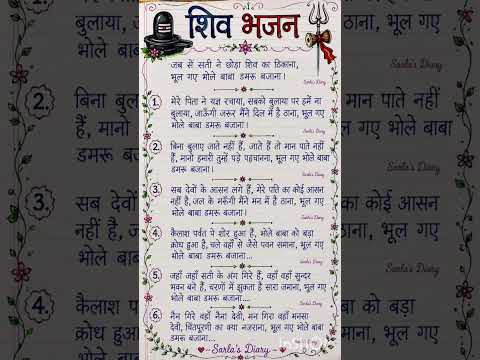 शिव भजन
जब से सती ने छोड़ा शिव का ठिकाना,
भूल गए भोले बाबा डमरू बजाना।
Sarla's Diary
1.
मेरे पिता ने यज्ञ रचाया, सबको बुलाया पर हमें ना
बुलाया, जाऊँगी जरूर मैंने दिल में है ठाना, भूल गए
भोले बाबा डमरू बजाना।
Sarla's Diary
2.
बिना बुलाए जाते नहीं हैं, जाते हैं तो मान पाते नहीं
हैं, मानो हमारी तुम्हें पड़े पहचानना, भूल गए भोले बाबा
डमरू बजाना।
Sarla's Diary
3.
सब देवों के आसन लगे हैं, मेरे पति का कोई आसन
नहीं है, जल के मरूँगी मैंने मन में है ठाना, भूल गए
भोले बाबा डमरू बजाना।
Sarla's Diary
4.
कैलाश पर्वत पे शोर हुआ है, भोले बाबा को बड़ा
क्रोध हुआ है, चले वहाँ से जैसे पवन समाना, भूल गए
भोले बाबा डमरू बजाना।
Sarla's Diary
5.
जहाँ जहाँ सती के अंग गिरे हैं, वहाँ वहाँ सुन्दर
भवन बने हैं, चरणों में झुकता है सारा जमाना, भूल गए
भोले बाबा डमरू बजाना...
Sarla's Diary
6.
नैन गिरे वहाँ नैना देवी, मन गिरा वहाँ मनसा
देवी, चिंतपूर्णी का क्या नजराना, भूल गए भोले बाबा
डमरू बजाना...
Sarla's Diary